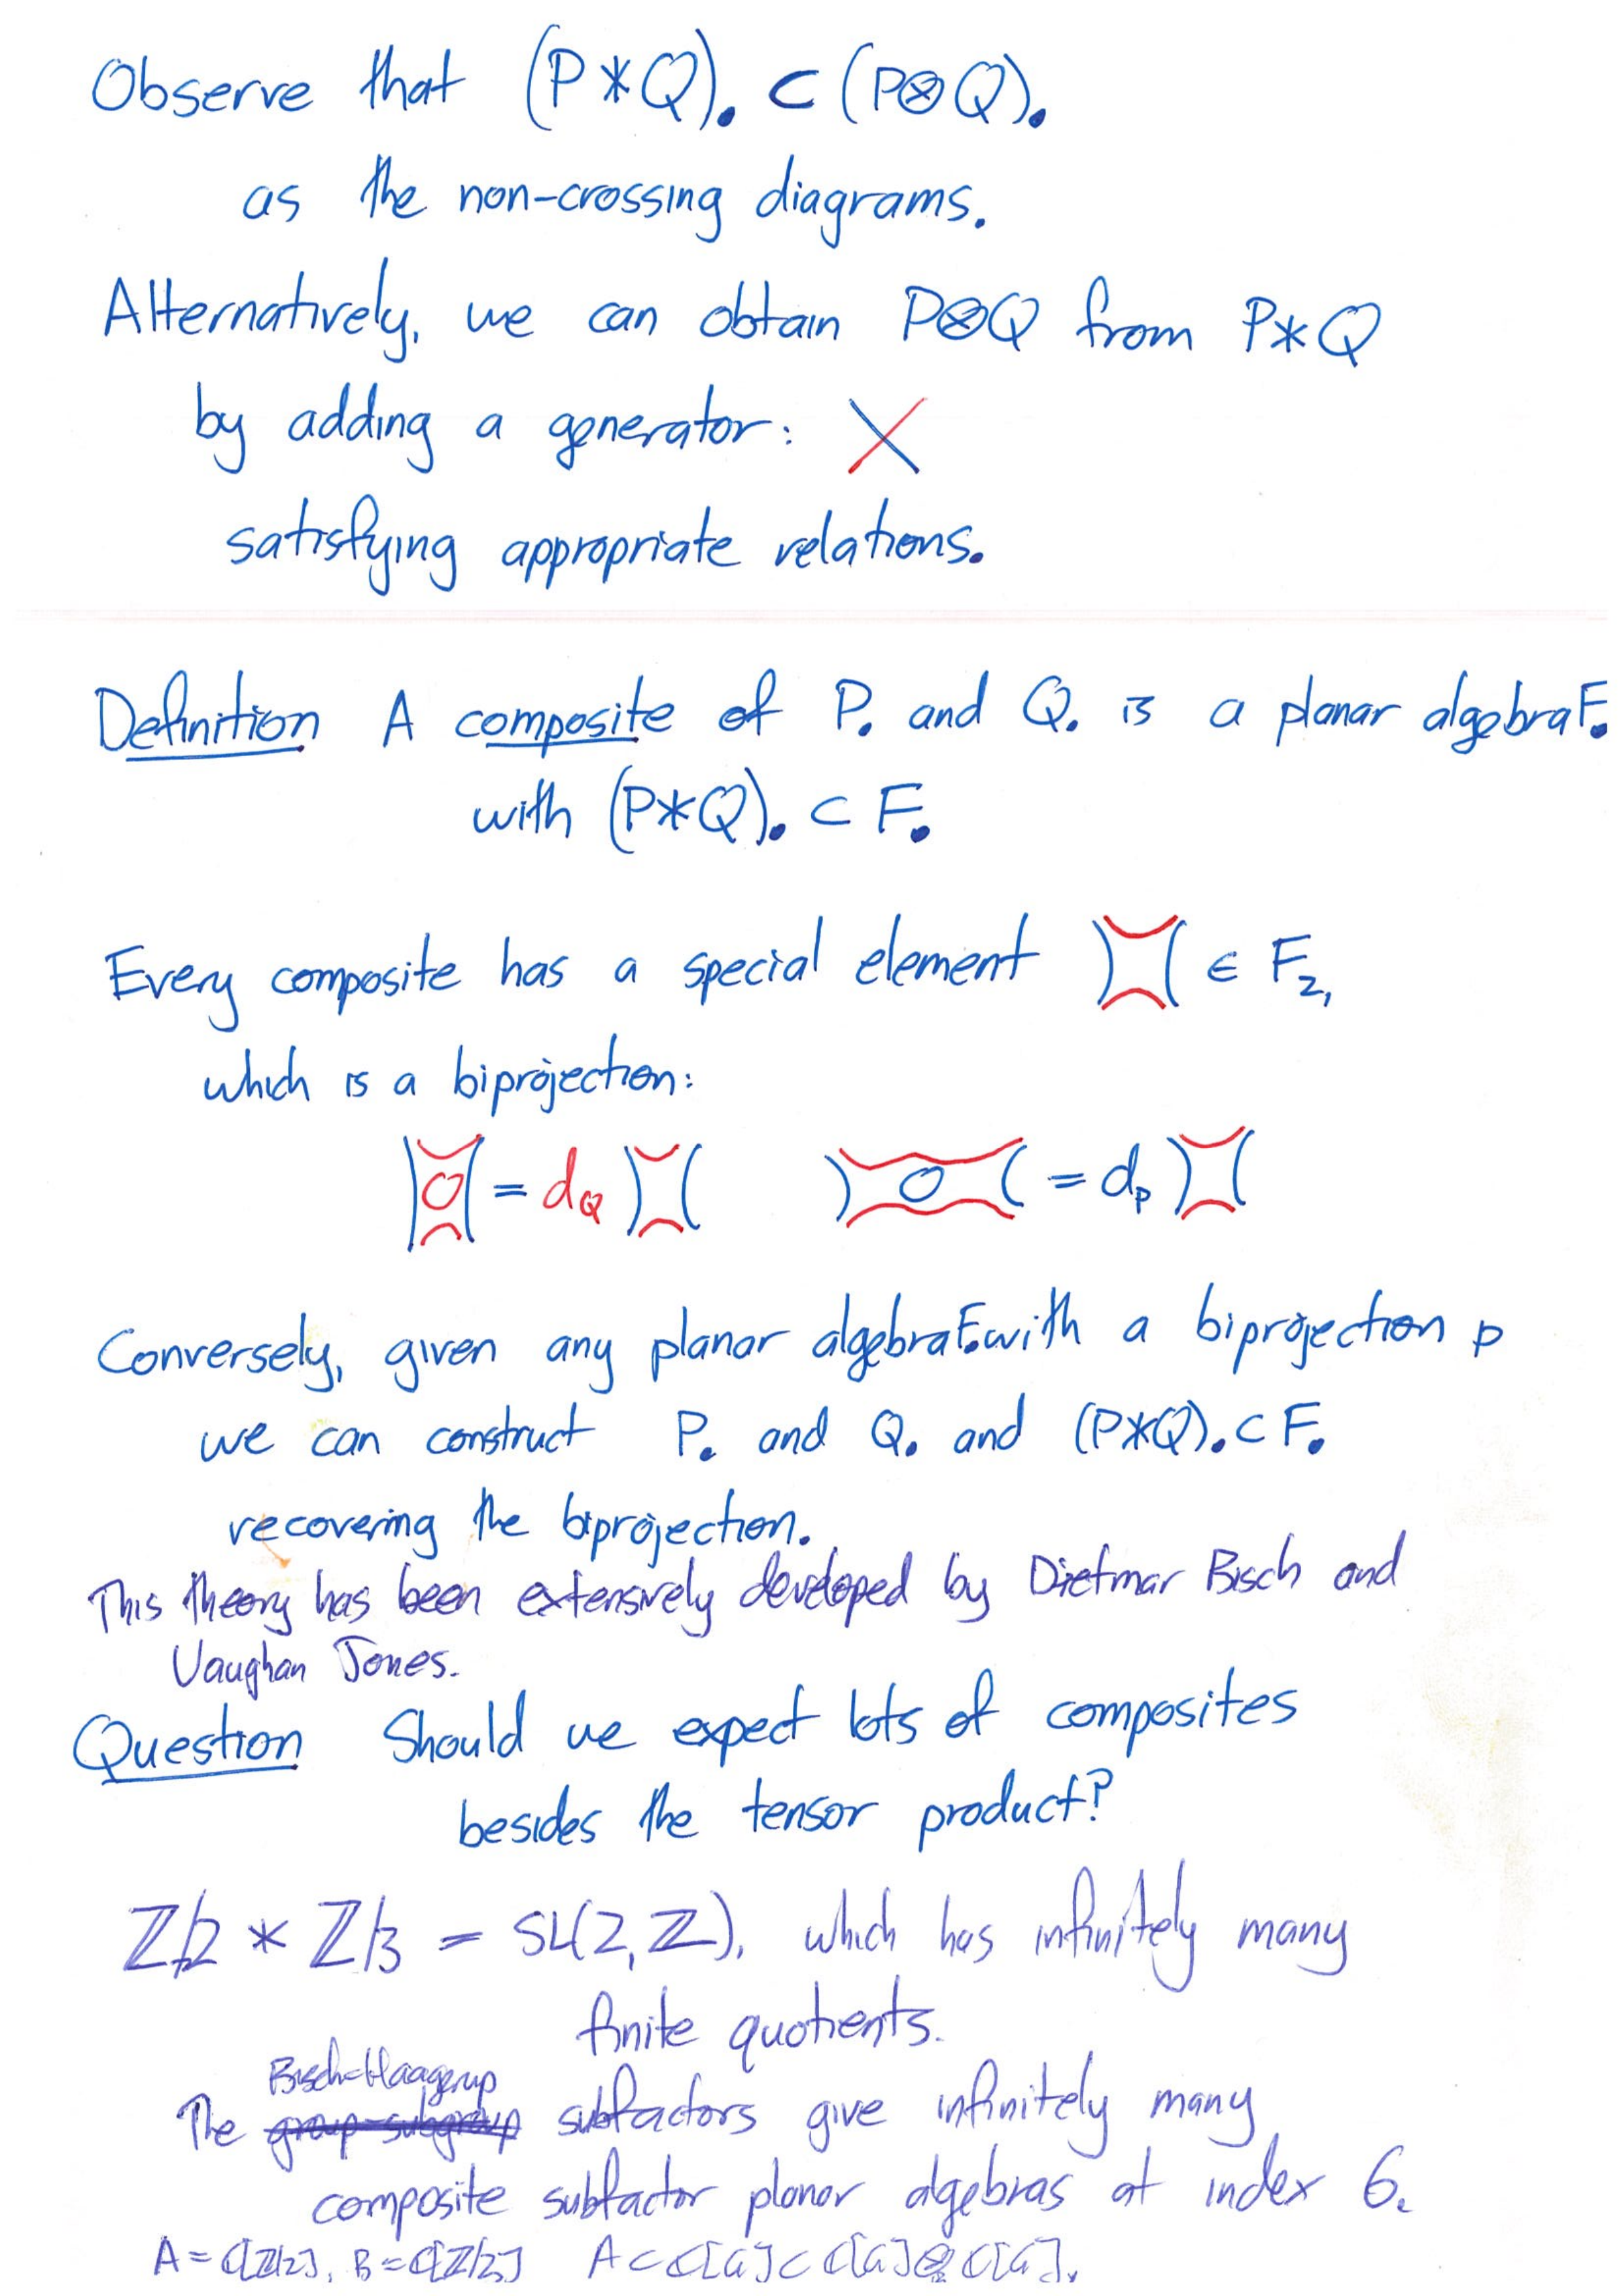 Observe that (P*Q)• ⊂ (P⊗Q)•
as the non-crossing diagrams.
Alternatively, we can obtain P⊗Q from P*Q
by adding a generator:
satisfying appropriate relations.
Definition A composite of P• and Q• is a planar algebra F•
with (P*Q)• ⊂ F•
Every composite has a special element ∈ F₂,
which is a biprojection:
= d_Q = d_P
Conversely, given any planar algebra F• with a biprojection p
we can construct P• and Q• and (P*Q)• ⊂ F•
recovering the biprojection.
This theory has been extensively developed by Dietmar Bisch and
Vaughan Jones.
Question Should we expect lots of composites
besides the tensor product?
ℤ/2 * ℤ/3 = SL(2,ℤ), which has infinitely many
finite quotients.
Bisch-Haagerup
The group-subgroup subfactors give infinitely many
composite subfactor planar algebras at index 6.
A = ℂ[ℤ/2], B = ℂ[ℤ/3] A ⊂ ℂ[G] ⊂ ℂ[G] ⊗ ℂ[G].